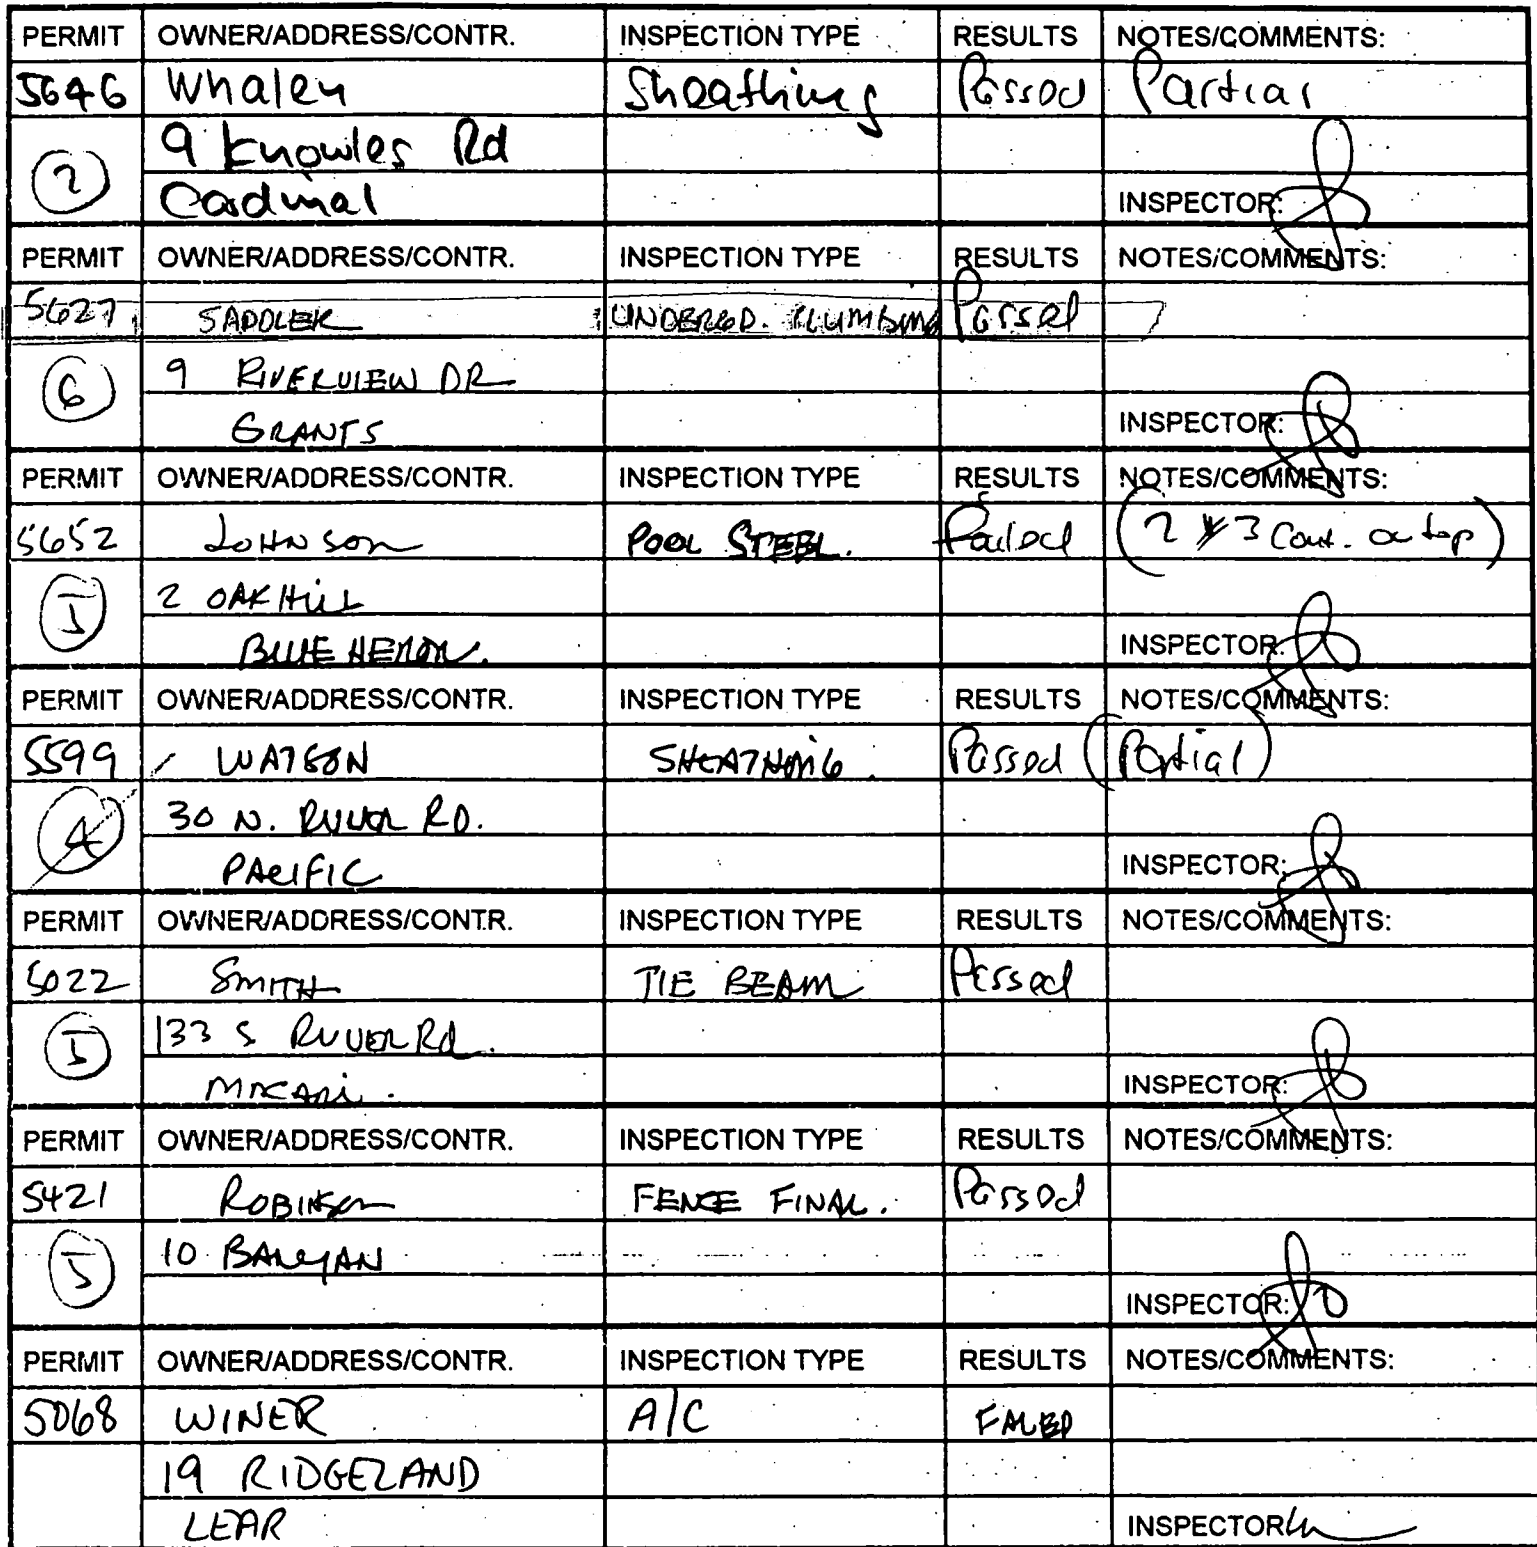 PERMIT OWNER/ADDRESS/CONTR. INSPECTION TYPE RESULTS NOTES/COMMENTS:
5646 Whalen Sheathing Passed Partial
9 Knowles Rd
2 Cardinal INSPECTOR:
PERMIT OWNER/ADDRESS/CONTR. INSPECTION TYPE RESULTS NOTES/COMMENTS:
5627 SADDLER UNDERGD. PLUMBING Passed
6 9 RIVERVIEW DR
GRANTS INSPECTOR:
PERMIT OWNER/ADDRESS/CONTR. INSPECTION TYPE RESULTS NOTES/COMMENTS:
5652 JOHNSON POOL STEEL. Failed (2 #3 Cont. on top)
2 OAK HILL
BLUE HERON. INSPECTOR:
PERMIT OWNER/ADDRESS/CONTR. INSPECTION TYPE RESULTS NOTES/COMMENTS:
5599 WATSON SHEATHING. Passed (Partial)
4 30 N. RIVER RD.
PACIFIC INSPECTOR:
PERMIT OWNER/ADDRESS/CONTR. INSPECTION TYPE RESULTS NOTES/COMMENTS:
5022 SMITH TIE BEAM Passed
133 S RIVER Rd.
INSPECTOR:
PERMIT OWNER/ADDRESS/CONTR. INSPECTION TYPE RESULTS NOTES/COMMENTS:
5421 ROBINSON FENCE FINAL. Passed
10 BANYAN
INSPECTOR:
PERMIT OWNER/ADDRESS/CONTR. INSPECTION TYPE RESULTS NOTES/COMMENTS:
5068 WINER A/C FAILED
19 RIDGELAND
LEAR INSPECTOR